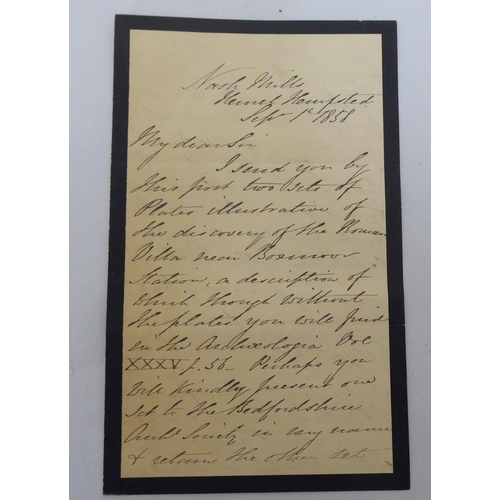 Nash Mills
Hemel Hempsted
Sept 1st 1858
My dear Sir
I send you by
this post two sets of
Plates illustrative of
the discovery of the Roman
Villa near Boxmoor
Station, a description of
which though without
the plates you will find
in the Archæologia Vol
XXXV p. 56 – Perhaps you
will kindly present one
set to the Bedfordshire
Archl Society in my name
& return the other set